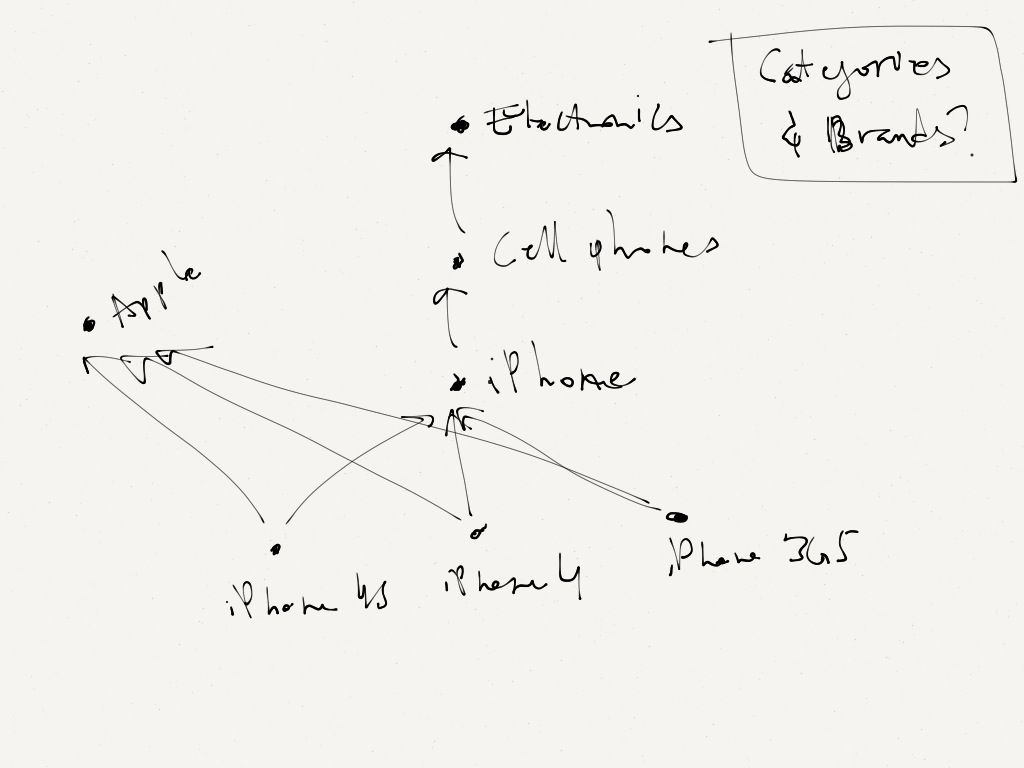 Categories
& Brands?
Electronics
Cell phones
Apple
iPhone
iPhone 4S
iPhone 4
iPhone 3GS